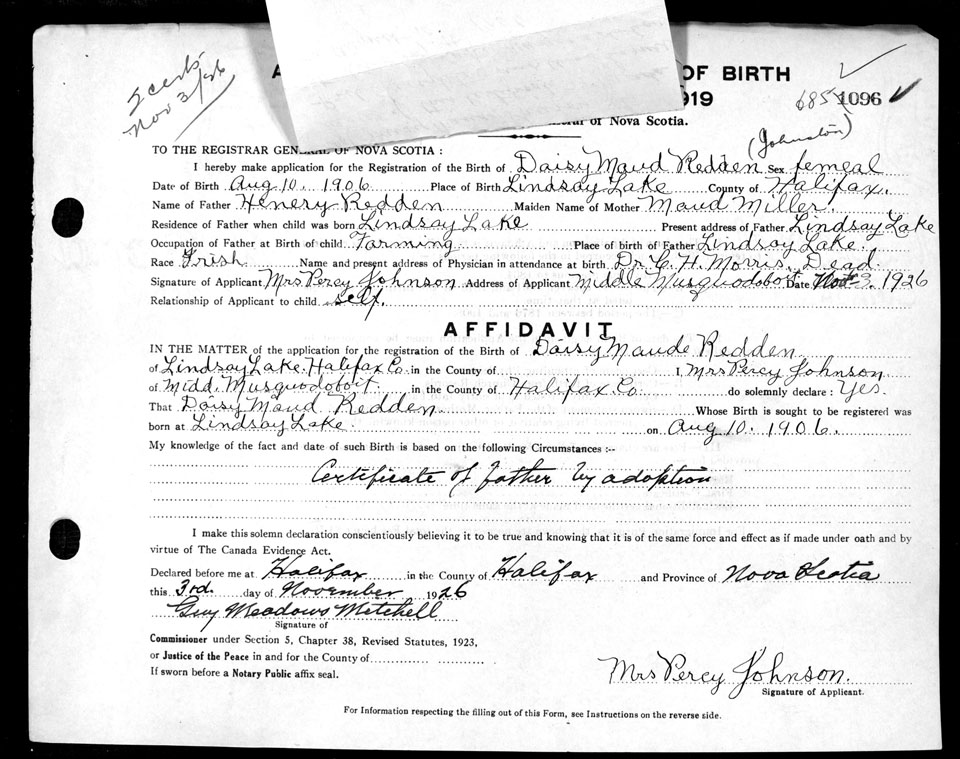 2 certs
Nov 3/26
OF BIRTH
1919
685 1096
of Nova Scotia.
(Johnston)
TO THE REGISTRAR GENERAL OF NOVA SCOTIA :
I hereby make application for the Registration of the Birth of Daisy Maud Redden Sex femeal
Date of Birth Aug 10. 1906 Place of Birth Lindsay Lake County of Halifax.
Name of Father Henery Redden Maiden Name of Mother Maud Miller.
Residence of Father when child was born Lindsay Lake Present address of Father Lindsay Lake
Occupation of Father at Birth of child Farming Place of birth of Father Lindsay Lake.
Race Irish Name and present address of Physician in attendance at birth Dr. C. H. Morris. Dead
Signature of Applicant Mrs Percy Johnson Address of Applicant Middle Musquodoboit Date Nov 3. 1926
Relationship of Applicant to child self.
AFFIDAVIT
IN THE MATTER of the application for the registration of the Birth of Daisy Maude Redden
of Lindsay Lake. Halifax Co. in the County of I, Mrs Percy Johnson
of Midd. Musquodoboit. in the County of Halifax. Co. do solemnly declare : Yes.
That Daisy Maud Redden. Whose Birth is sought to be registered was
born at Lindsay Lake. on Aug 10. 1906.
My knowledge of the fact and date of such Birth is based on the following Circumstances :--
Certificate of father by adoption
I make this solemn declaration conscientiously believing it to be true and knowing that it is of the same force and effect as if made under oath and by
virtue of The Canada Evidence Act.
Declared before me at Halifax in the County of Halifax and Province of Nova Scotia
this 3rd. day of November 1926
Guy Meadows Mitchell
Signature of
Commissioner under Section 5, Chapter 38, Revised Statutes, 1923,
or Justice of the Peace in and for the County of
If sworn before a Notary Public affix seal.
Mrs Percy Johnson.
Signature of Applicant.
For Information respecting the filling out of this Form, see Instructions on the reverse side.